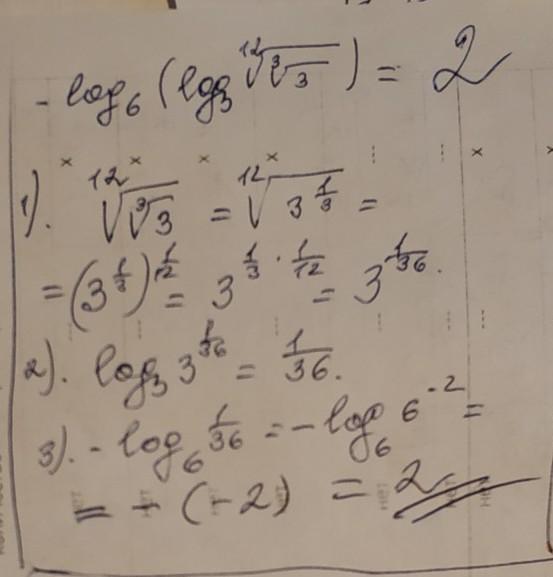 -log₆(log₃ ¹²√(³√3)) = 2
1). ¹²√(³√3) = ¹²√(3^(1/3)) =
= (3^(1/3))^(1/12) = 3^(1/3 · 1/12) = 3^(1/36).
2). log₃ 3^(1/36) = 1/36.
3). -log₆ 1/36 = -log₆ 6^(-2) =
= -(-2) = 2